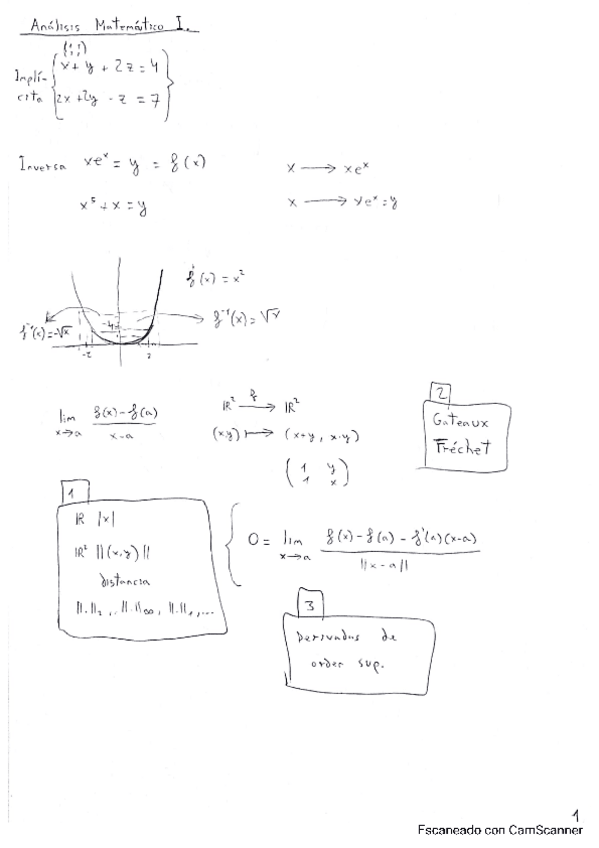 Análisis Matemático I.
(;;)
Implí-
cita
x + y + 2z = 4
2x + 2y - z = 7
Inversa xeˣ = y = f(x)
x ⟶ xeˣ
x⁵ + x = y
x ⟶ xeˣ = y
f(x) = x²
f⁻¹(x) = -√x
f⁻¹(x) = √x
-4
-2
2
lim x→a (f(x) - f(a))/(x - a)
ℝ² ⟶ ℝ²
f
(x,y) ⟼ (x+y, x·y)
(1 y
1 x)
2
Gâteaux
Fréchet
1
ℝ |x|
ℝ² ||(x,y)||
distancia
||·||₂, ||·||∞, ||·||₁, ...
0 = lim x→a (f(x) - f(a) - f'(a)(x-a))/||x - a||
3
Derivadas de
orden sup.
1
Escaneado con CamScanner